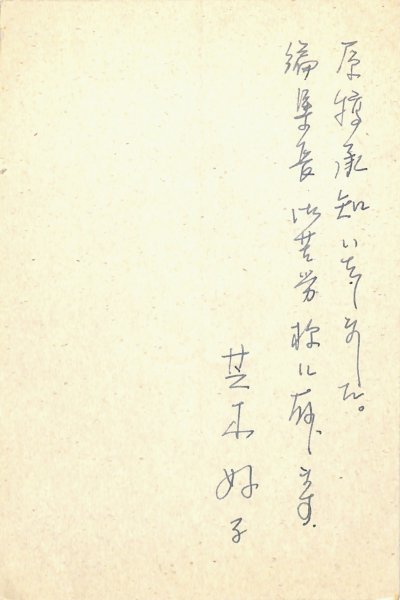 原稿承知いたしました。
編集長 御苦労様に存じます
芝木好子